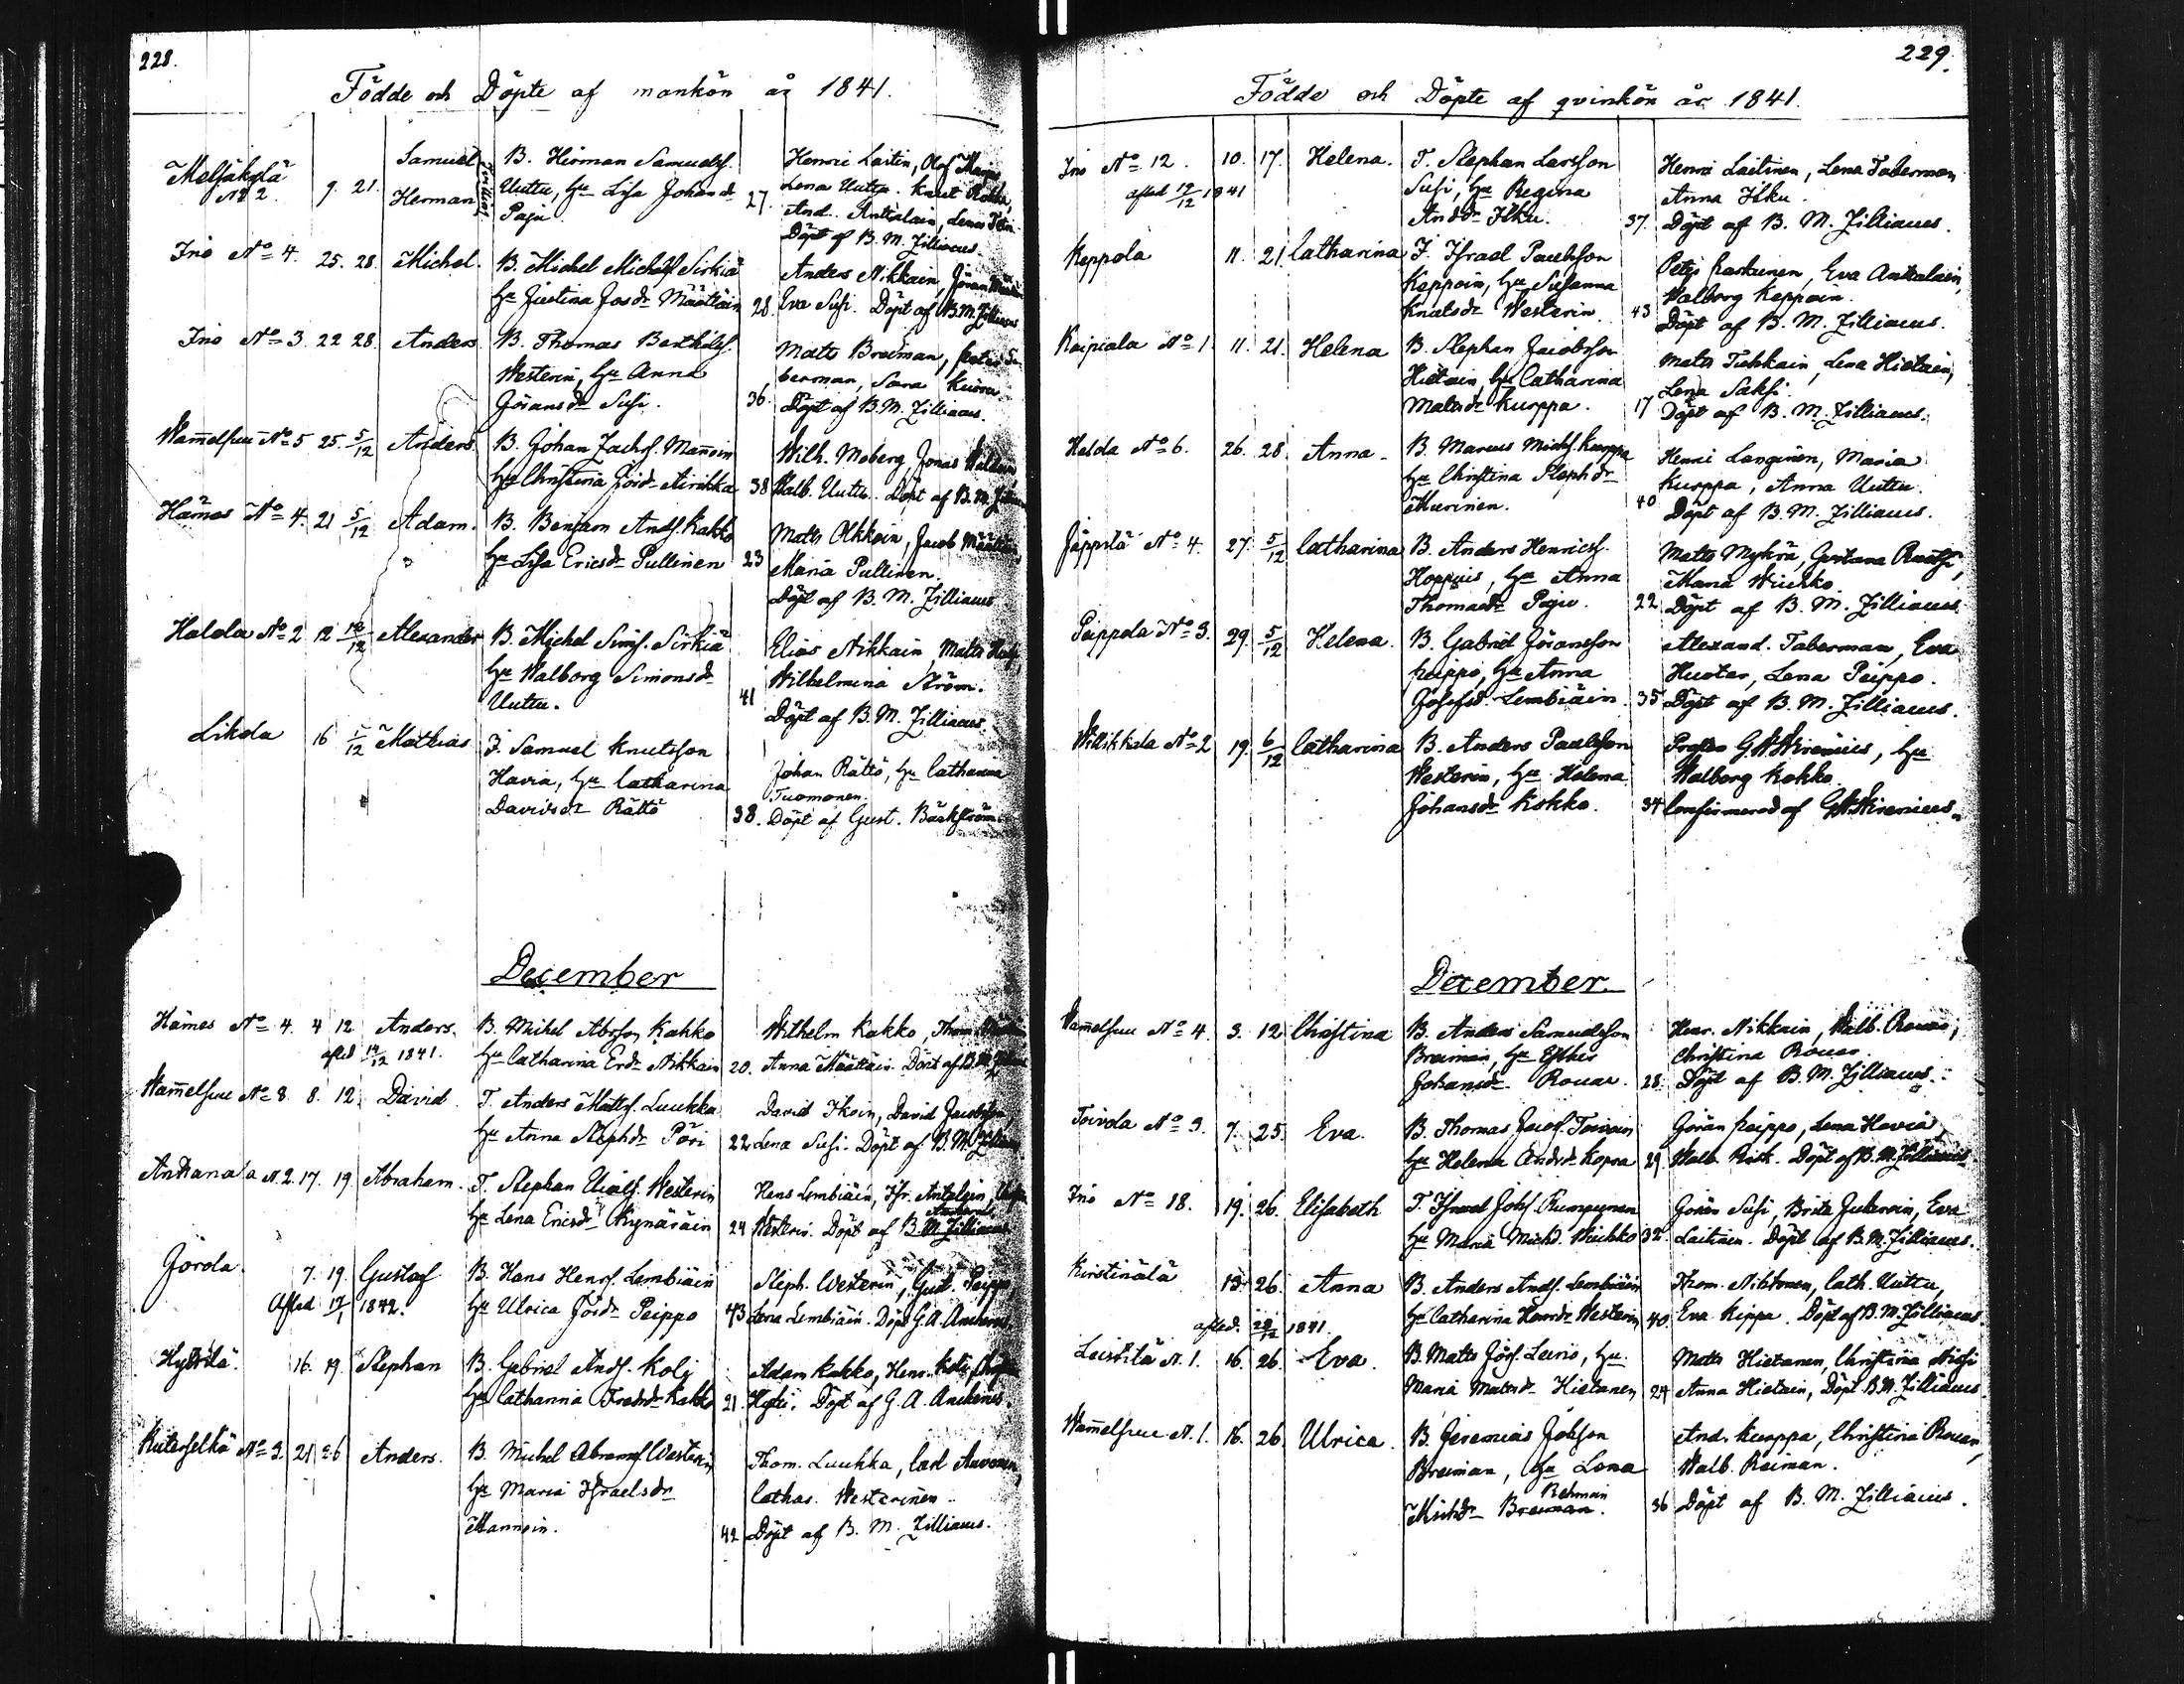 228.
Födde och Döpte af mankön år 1841.
Metsäkylä No 2 9. 21. Samuel Herman Tvilling B. Herman Samuelss.
Uuttu, Hu Lisa Johansdr
Paju 27.
Henric Laitin, Olof
Lena Uuttu. Knut
And. Antialain, Lena
Döpt af B. M. Zilliacus.
Ino No 4. 25. 28. Michel. B. Michel Michelss. Sirkiä
Hu Justina Josdr Määttäin 28.
Anders Nikkain, Jöran
Eva Susi. Döpt af B. M. Zilliacus
Ino No 3. 22 28. Anders B. Thomas Bertilss.
Westerin, Hu Anna
Göransdr Susi. 36.
Matts Breiman,
berman, Sara
Döpt af B. M. Zilliacus.
Wammelsuu No 5 25 5/12 Anders B. Johan Zachss. Mannin
Hu Christina 38
Wilh. Moberg, Jonas
Walb. Uuttu. Döpt af B. M.
Hämes No 4. 21 5/12 Adam. B. Benjam Andss. Kakko
Hu Lisa Ericsdr Pullinen 23
Matts Olkkoin, Jacob
Maria Pullinen
Döpt af B. M. Zilliacus
Halola No 2 12 12/12 Alexander B. Michel Simss. Sirkiä
Hu Walborg Simonsdr
Uuttu. 41
Elias Nikkain, Matts
Wilhelmina Ström.
Döpt af B. M. Zilliacus.
Likola 16 1/12 Mathias J. Samuel Knutsson
Havia, Hu Catharina
Davidsdr Rättö 38.
Johan Rättö, Hu Catharina
Tuomonen.
Döpt af Gust. Bäckström
December
Hämes No 4. 4 12 Anders. B. Mihel Abrsson Kakko
afled 14/12 1841. Hu Catharina Erdr Nikkain 20.
Wilhelm Kakko, Thom
Anna Määttäin. Döpt af B. M.
Wammelsuu No 8. 8. 12. David. T. Anders Mattss. Luukka
Hu Anna Stephdr Pöri 22
David Ikoin, David Jacobsson
Lena Susi. Döpt af B. M.
Anttanala N. 2. 17. 19. Abraham. T. Stephan Eliass. Westerin
Hu Lena Ericsdr Kynäräin 24
Hens Lembiäin, Isr. Antalain,
Westerin. Döpt af B. M. Zilliacus
Jörola. 7. 19. Gustaf B. Hans Henrss. Lembiäin
Afled 17/1 1842. Hu Ulrica Jördr Peippo 43
Steph. Westerin, Gust. Peippo,
Lena Lembiäin. Döpt G. A.
16. 19. Stephan B. Gabriel Andss. Kolj
Hu Catharina Fredrdr Kakko 21.
Adam Kakko, Henr.
Döpt af G. A.
Kuterselkä No 3. 21 26 Anders. B. Michel Abramss. Westerin
Hu Maria Israelsdr
Mannoin. 42
Thom. Luukka, Carl
Cathar. Westerinen
Döpt af B. M. Zilliacus.
229.
Födde och Döpte af qvinkön år 1841.
Ino No 12. 10. 17. Helena. T. Stephan Larsson
afled 12/12 1841 Susi, Hu Regina
Andrdr Ikku. 37.
Henric Laitinen, Lena Taberman
Anna Ikku.
Döpt af B. M. Zilliacus.
Keppola 11. 21. Catharina J. Israel Paulsson
Keppoin, Hu Susanna
Knutsdr Westerin. 43
Petrs Karhunen, Eva Antalain,
Walborg Keppoin.
Döpt af B. M. Zilliacus.
Kaipiala No 1. 11. 21. Helena B. Stephan Jacobsson
Hietain, Hu Catharina
Mattsdr Kurppa. 17
Matts Tuhkain, Lena Hietain,
Lena Saksi.
Döpt af B. M. Zilliacus.
Halola No 6. 26. 28. Anna. B. Marcus Michss. Kurppa
Hu Christina Stephdr
Murinen. 40
Henric Langinen, Maria
Kurppa, Anna Uuttu.
Döpt af B. M. Zilliacus.
Jäppilä No 4. 27. 5/12 Catharina B. Anders Henricss.
Hoppuis, Hu Anna
Thomasdr Paju. 22
Matts Mykrä,
Maria Wiehko
Döpt af B. M. Zilliacus.
Peippola No 3. 29. 5/12 Helena. B. Gabriel Göransson
Peippo, Hu Anna
Josefsd. Lembiäin. 35
Alexand. Taberman, Eva
Huoter, Lena Peippo.
Döpt af B. M. Zilliacus.
Willikkala No 2 19. 6/12 Catharina B. Anders Paulsson
Westerin, Hu Helena
Johansdr Kokko. 34
G. W. Wirenius, Hu
Walborg Kokko.
Confirmerad af G. W. Wirenius.
December.
Wammelsuu No 4. 3. 12. Christina B. Anders Samuelsson
Breiman, Hu Esther
Johansdr Rouar. 28.
Henr. Nikkain, Walb. Rouar,
Christina Rouar
Döpt af B. M. Zilliacus.
Toivola No 3. 7. 25. Eva. B. Thomas Jacss. Toivoin
Hu Helena Andrdr Kopra 29.
Göran Peippo, Lena Havia,
Walb. Döpt af B. M. Zilliacus.
Ino No 18. 19. 26. Elisabeth T. Israel Johss. Rumpunen
Hu Maria Michd. Wiehko 32.
Göran Susi, Brita Jukarain, Eva
Laitinen. Döpt af B. M. Zilliacus.
Kirstinälä 13. 26. Anna B. Anders Andss. Lembiäin
Hu Catharina Henrdr Westerin 40
Thom. Nikkonen, Cath. Uuttu,
Eva Kippa. Döpt af B. M. Zilliacus
afled. 28/12 1841.
Leistilä N. 1. 16. 26. Eva. B. Matts Jörss. Leinö, Hu
Maria Mattsdr Hietanen 24
Matts Hietanen, Christina
Anna Hietain, Döpt B. M. Zilliacus
Wammelsuu N. 1. 16. 26. Ulrica. B. Jeremias Johsson
Breiman, Hu Lena
Rehmoin
Michdr Breiman. 36
And. Kurppa, Christina Rouar,
Walb. Reiman.
Döpt af B. M. Zilliacus.